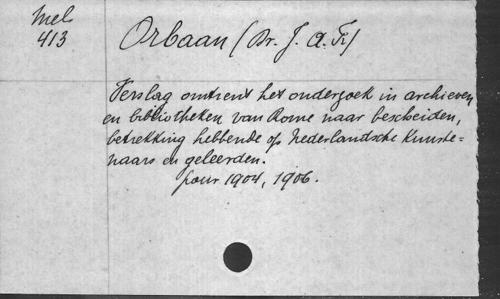 Mel
413
Orbaan (Dr. J. A. F.)
Verslag omtrent het onderzoek in archieven
en bibliotheken van Rome naar bescheiden,
betrekking hebbende op Nederlandsche Kunste-
naars en geleerden.
pour 1904, 1906.